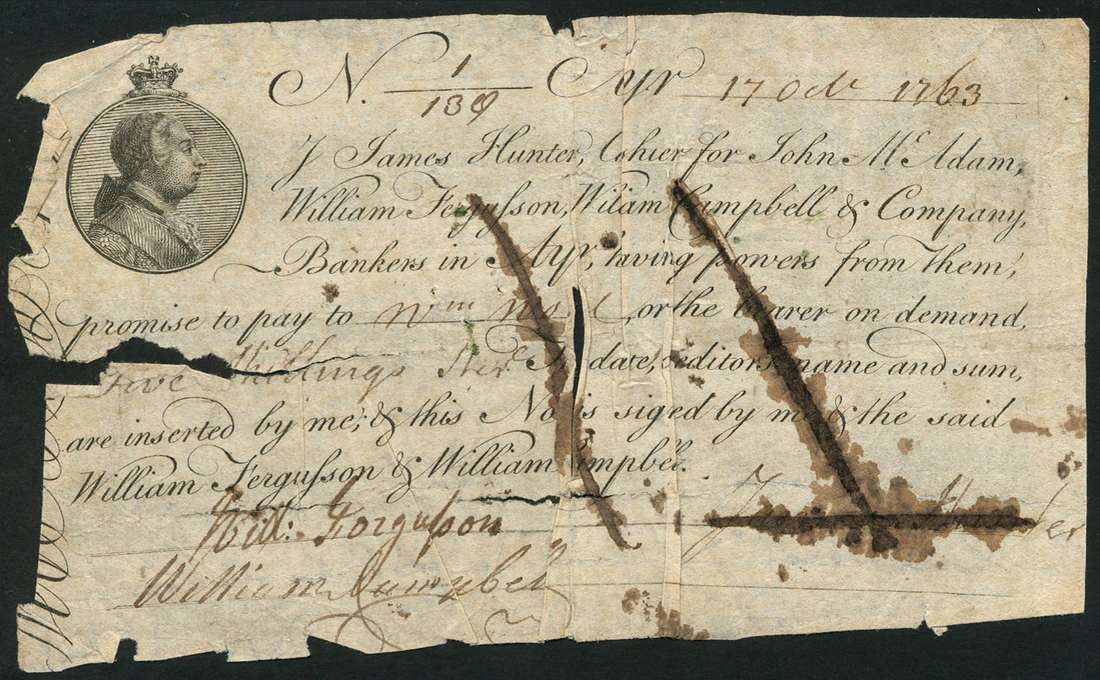 N. 1/139 Ayr 17 Oct 1763
I James Hunter, Cohier for John McAdam,
William Fergusson, Wiliam Campbell & Company,
Bankers in Ayr, having powers from them,
promise to pay to Wm, or the bearer on demand,
Five Shillings Ster. The date, creditors name and sum,
are inserted by me, & this Note is signed by me & the said
William Fergusson & William Campbel.
Will: Fergusson
James Hunter
William Campbel